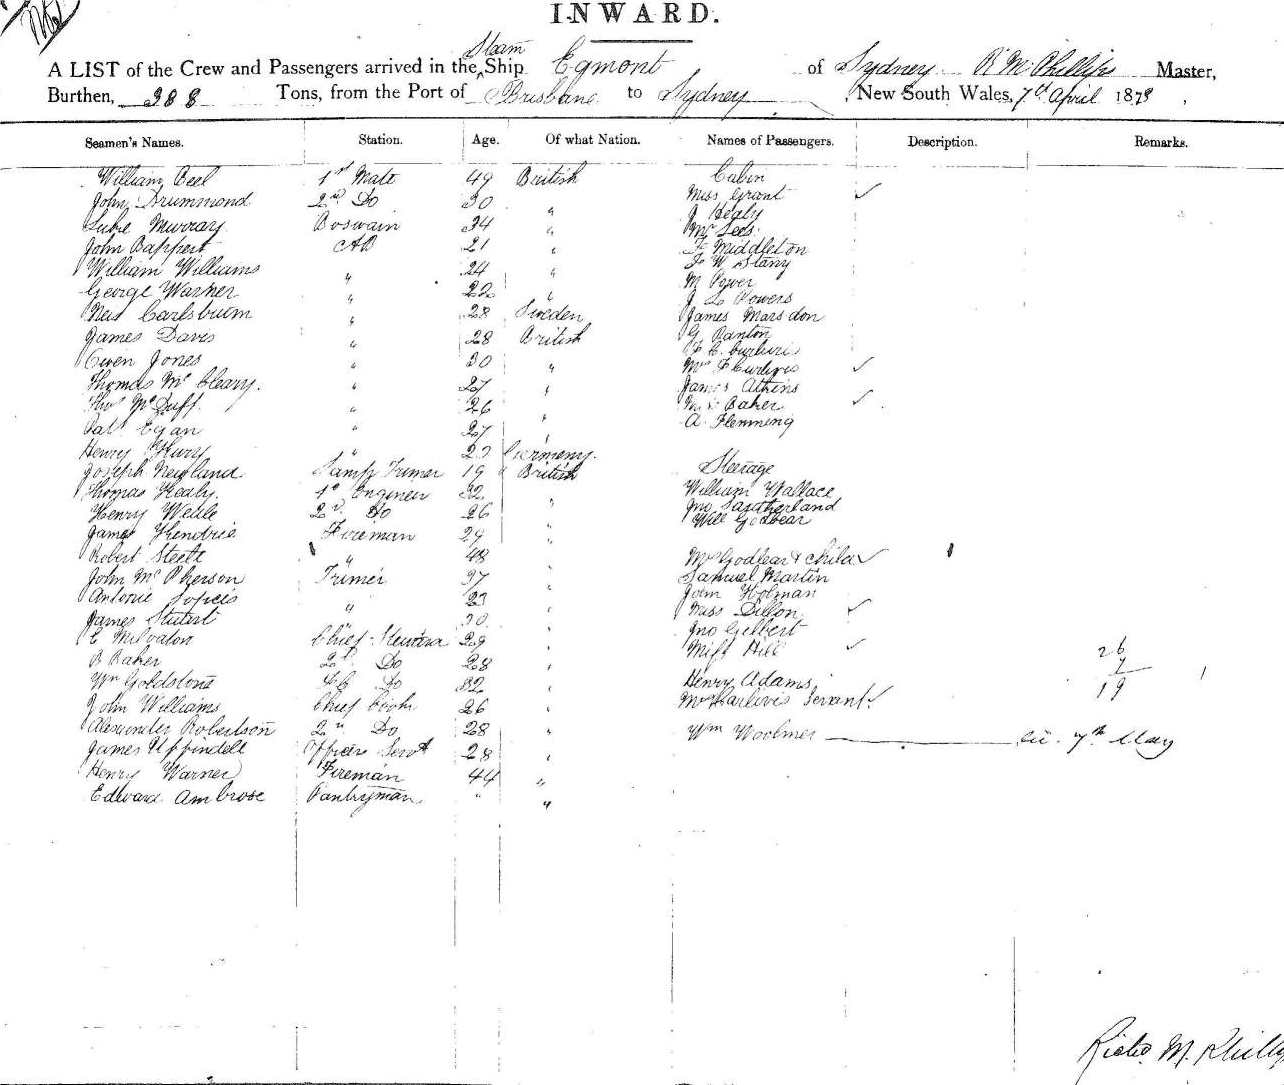 INWARD.
Steam
A LIST of the Crew and Passengers arrived in the Ship Egmont of Sydney R M Phillips Master,
Burthen, 388 Tons, from the Port of Brisbane to Sydney, New South Wales, 7th April 1878,
Seamen's Names. Station. Age. Of what Nation. Names of Passengers. Description. Remarks.
William 1st Mate 49 British Cabin
John Drummond 2nd Do 30 " Miss Grant ✓
Luke Murray Boswain 34 " J Healy
John AB 21 " Mr Lees
William Williams " 24 " F Middleton
George Warner " 22 " J W
Carlsbum " 28 Sweden M Power
James Davis " 28 British J L Powers
Owen Jones " 30 " James Marsdon
Thomas Mc Cleary. " 27 " G Panton
Thos Mc Duff. " 26 "
Pat Egan " 27 " Mrs F ✓
Henry " 27 Germeny. James Atkins
Joseph Newland Lamp Trimer 19 British Mrs Baker ✓
Thomas Healy. 1st Engineer 32 " A Flemming
Henry 2nd Do 26 " Steerage
James Kendrie Fireman 29 " William Wallace
Robert Steele " 48 " Jno Southerland
John Mc Pherson Trimer 37 " Will Godbear
Antonie " 27 " Mrs Godbear & Child ✓
James " 30 " Samuel Martin
E Chief Steward 29 " John Holman
B Baker 2nd Do 28 " Miss Dillon ✓
Wm Goldstone Do 32 " Jno Gilbert
John Williams Chief Cook 26 " Miss Hill ✓ 26
Alexander Robertson 2nd Do 28 " Henry Adams 7
James Uppindell Officers Servt 28 " Mrs Servant ✓ 19
Henry Warner Fireman 44 " Wm Woolmer 7th May
Edward Ambrose Pantryman. " "
Richd. M. Phillips